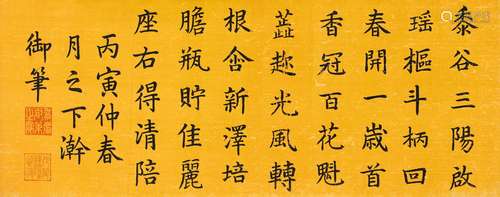 黍谷三陽啟
瑶樞斗柄回
春開一歲首
香冠百花魁
蕋趂光風轉
根含新澤培
膽瓶貯佳麗
座右得清陪
丙寅仲春
月之下澣
御筆